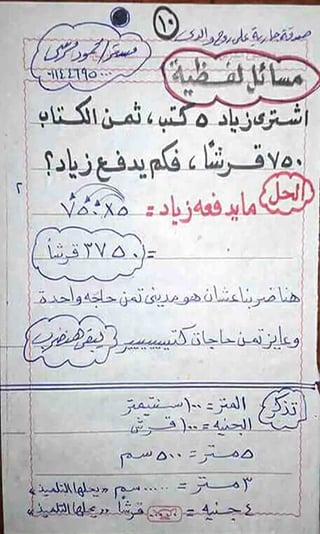 صدقة جارية على روح والدى
١٠
مستر/ محمود مرسى
مسائل لفظية
اشترى زياد ٥ كتب، ثمن الكتاب
٧٥٠ قرشًا، فكم يدفع زياد؟
الحل
ما يدفعه زياد = ٧٥٠×٥
= ٣٧٥٠ قرشًا
هنا ضربنا عشان هو مدينى تمن حاجه واحدة
وعايز تمن حاجات كتيييييير يبقى هنضرب
تذكر
المتر = ١٠٠ سنتيمتر
الجنيه = ١٠٠ قرش
٥ متر = ٥٠٠ سم
٣ متر = ...... سم «يحلها التلميذ»
٤ جنيه = قرشًا «يحلها التلميذ»